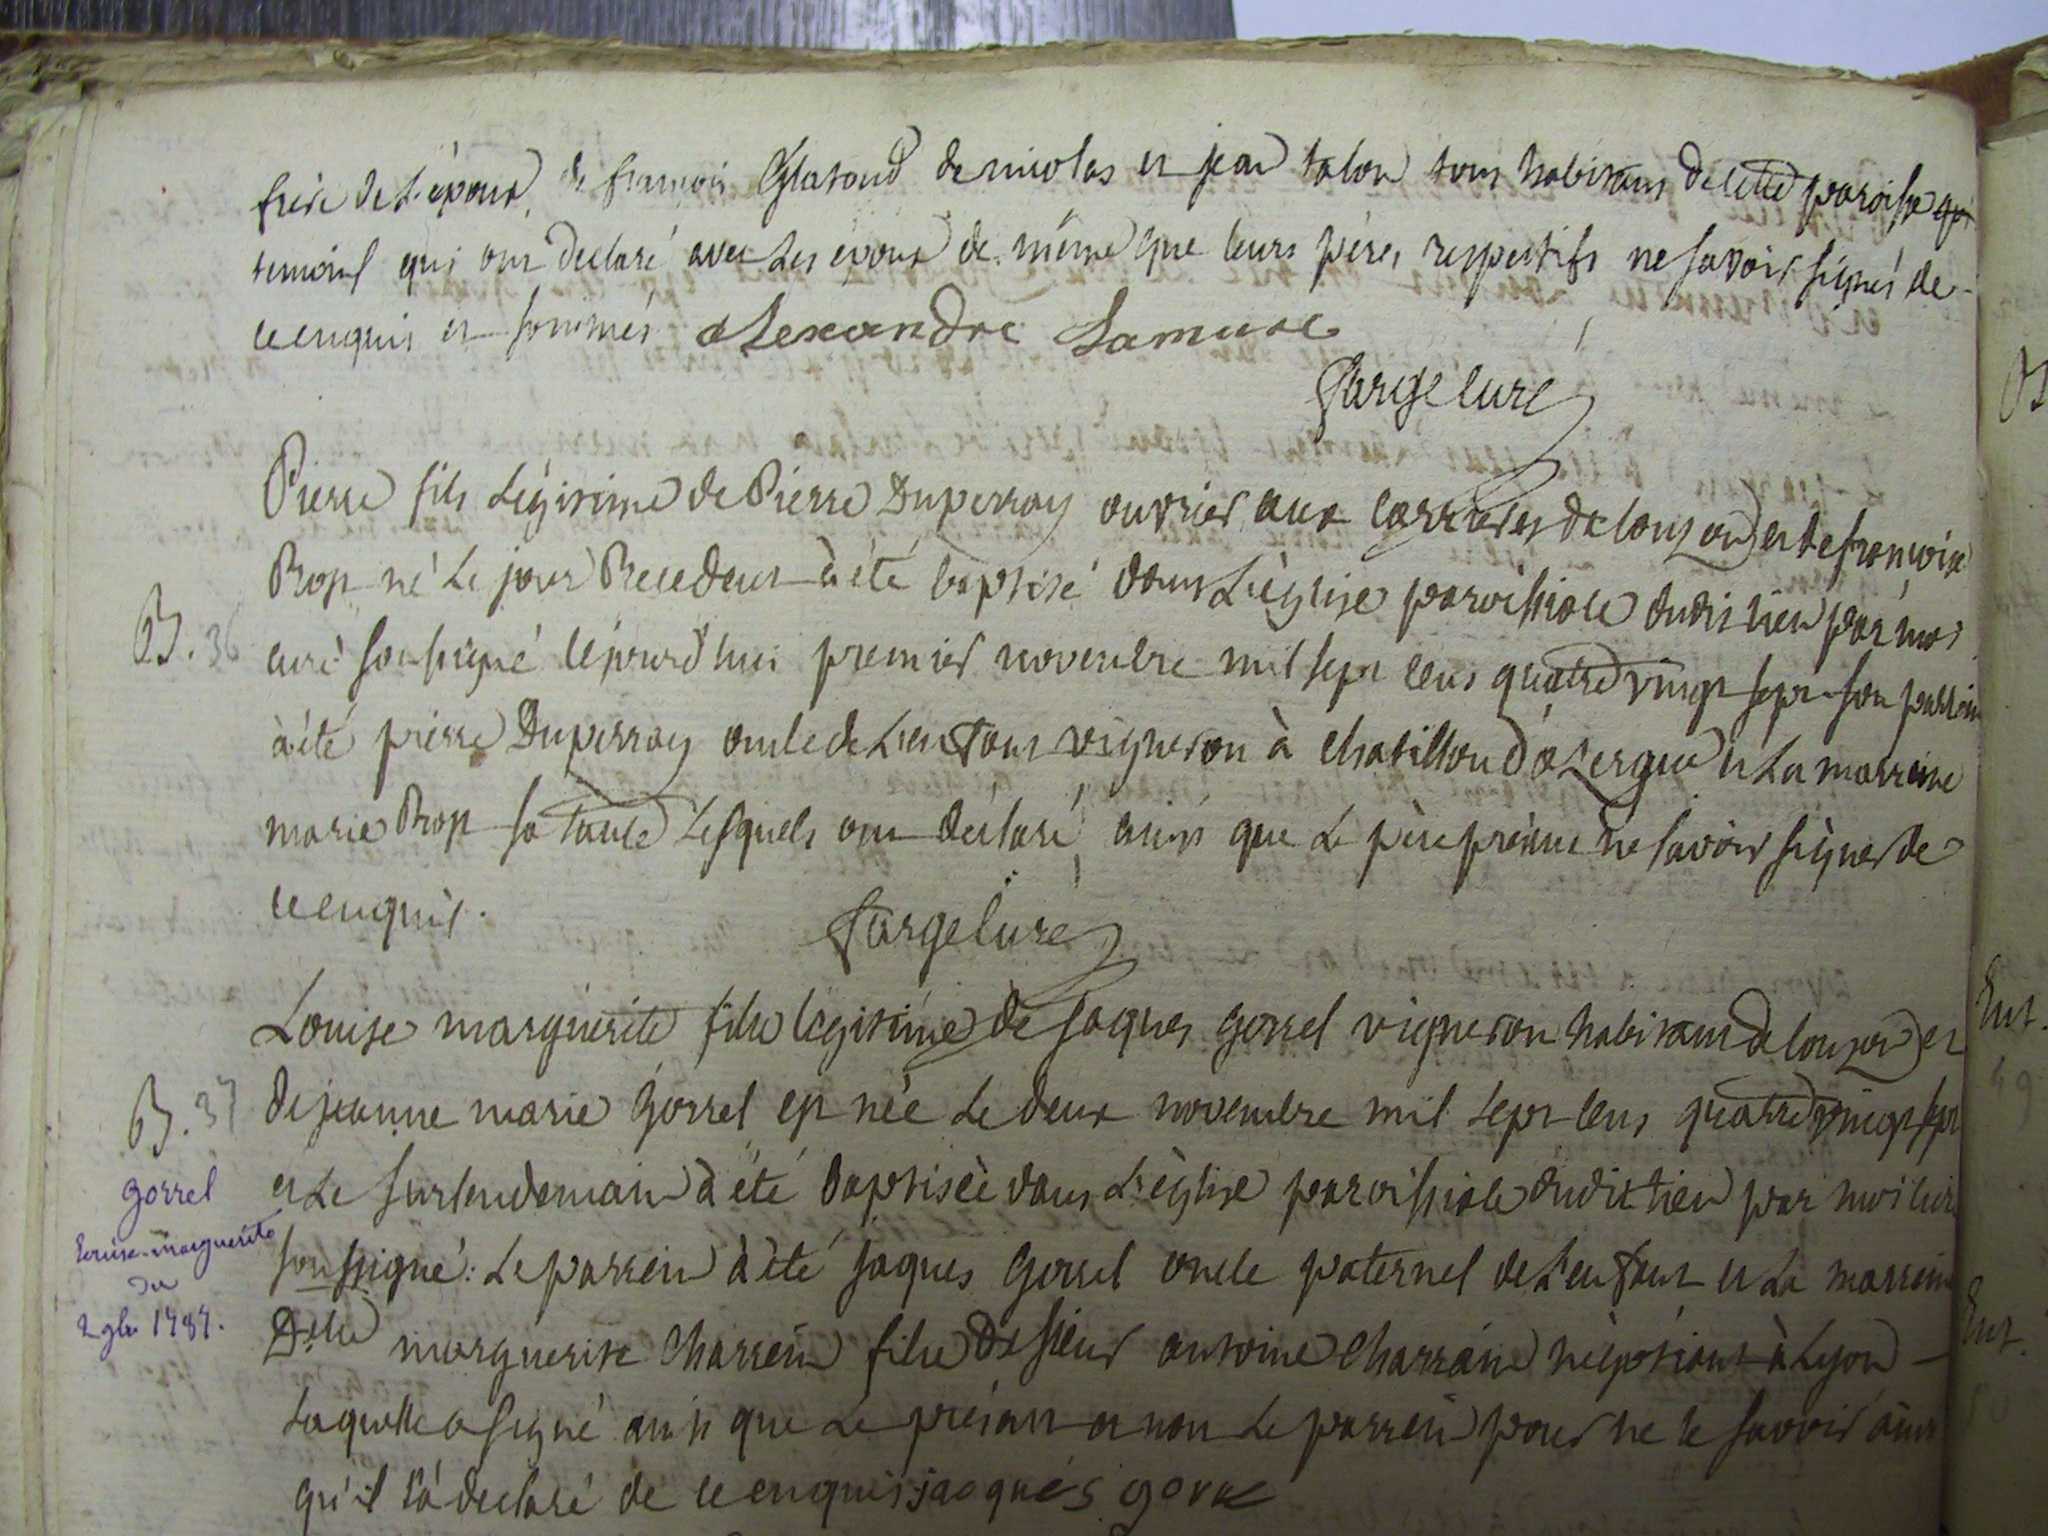 frère de L'époux, de francois Glatoud de nicolas et jean talon tous habitans de cette paroisse
temoins qui ont declaré avec Les époux de même que leurs péres respectifs ne savoir signér de
ce enquis et sommés alexandre Lamure
farge curé
Pierre fils Légitime de Pierre Duperray ouvrier aux carrieres de Couzon et de francoise
Prost né Le jour Precedent à été baptisé dans L'église paroissiale dudit lieu par moi
B. 36
curé soussigné cejourd'hui premier novembre mil sept cens quatre vingt sept son parrein
à été pierre Duperray oncle de L'enfant vigneron à chatillon d'aZergue et La marreine
marie Prost sa tante Lesquels ont déclaré ainsi que Le père présent ne savoir signer de
ce enquis.
farge Curé
Louise marguerite fille légitime de jaques gorrel vigneron habitant de Couzon et
B. 37
de jeanne marie gorrel est née Le deux novembre mil sept cens quatre vingt sept
gorrel
et Le surlendemain à été baptisée dans L'église paroissiale dudit lieu par moi curé
Louise-marguerite
du
soussigné: Le parrein à été jaques gorrel oncle paternel de L'enfant et La marreine
2 9bre 1787.
D.elle marguerite Charrein fille de sieur antoine Charrein négotiant à Lyon
Laquelle a signé ainsi que Le présent et non Le parrein pour ne le savoir ainsi
qu'il l'à declaré de ce enquis jacques gorel
Ent.
49
Ent.
50